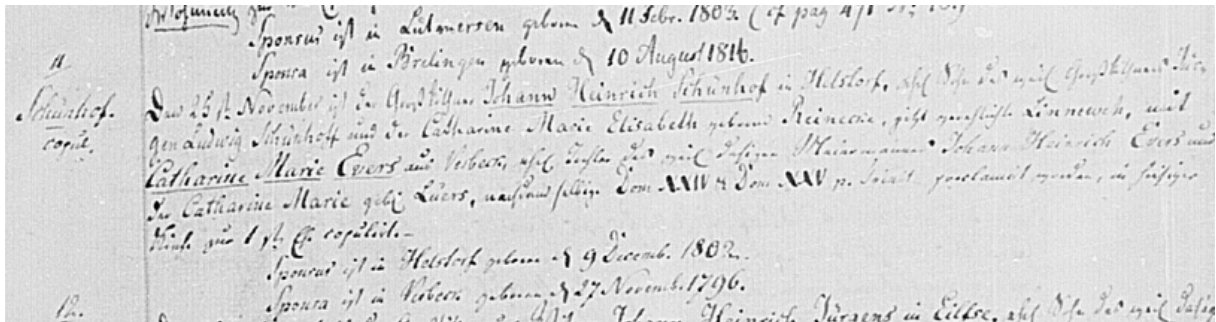 Sponsus ist in Lutmersen geboren d 11 Febr. 1803. (cf pag 471
Sponsa ist in Brelingen geboren d 10 August 1816.
11.
Schünhof.
copul.
Den 25 st. November ist der Großköthner Johann Heinrich Schünhof in Helstorf, ehel Sohn des weil Großköthners Jür-
gen Ludwig Schünhoff und der Catharine Marie Elisabeth geborne Reinecke, jetzt verehelichte Linneweh, mit
Catharine Marie Evers aus Vesbeck, ehel Tochter des weil dasigen Meiermannes Johann Heinrich Evers und
der Catharine Marie geb. Lüers, nachdem selbige Dom XXIV & Dom XXV p. Trinit. proclamirt worden, in hiesiger
Kirche zur 1 st. Ehe copulirt.
Sponsus ist in Helstorf geboren d 9 Decemb. 1802.
Sponsa ist in Vesbeck geboren d 27 Novemb. 1796.
12.
Johann Heinrich Jürgens in Eilfse, ehel Sohn des weil dasig